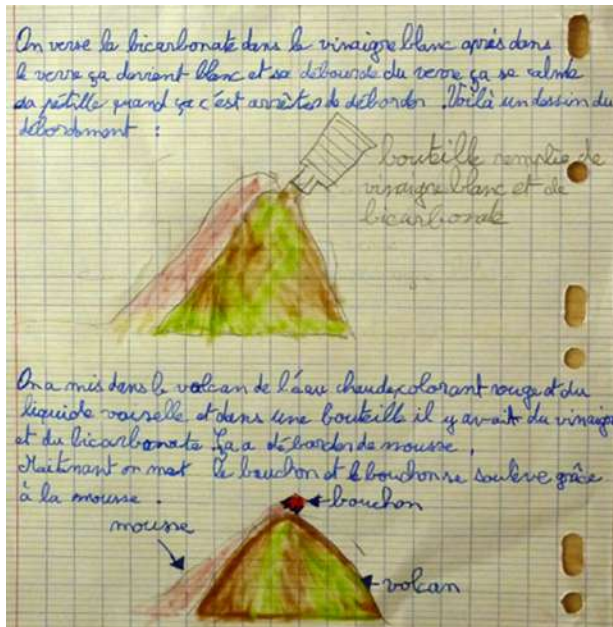 On verse le bicarbonate dans le vinaigre blanc après dans
le verre ça devient blanc et sa déborde du verre ça se calme
sa pétille quand ça c'est arrêtes de débordr. Voilà un dessin du
débordment :
bouteille remplie de
vinaigre blanc et de
bicarbonate
On a mis dans le volcan de l'eau chaude, colorant rouge et du
liquide vaiselle et dans une bouteille il y avait du vinaigre
et du bicarbonate Ça a débordr de mousse.
Maitinant on met le bouchon et le bouchon se soulève grâce
à la mousse.
bouchon
mousse
volcan